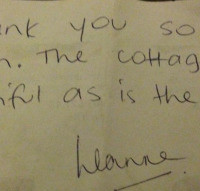 ank you so
n. The cottag
iful as is the
Leanne